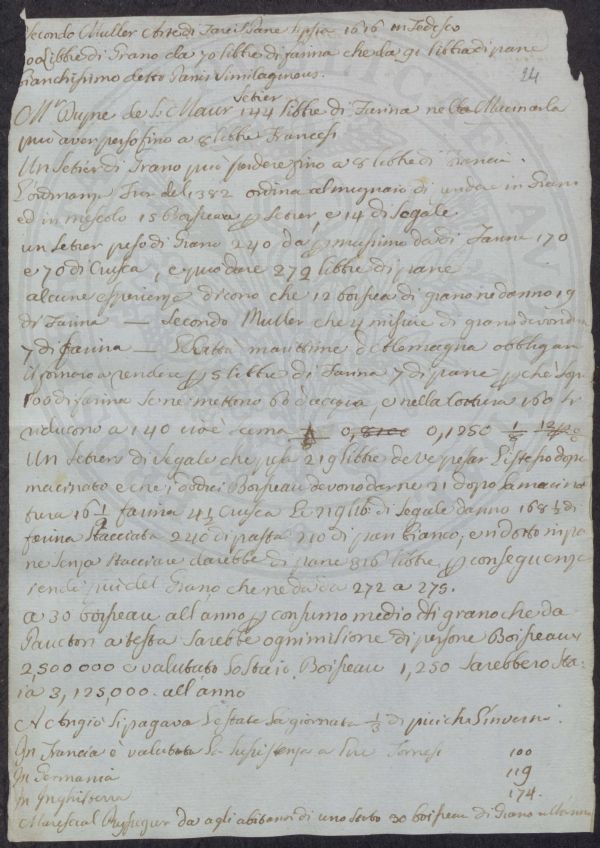 Secondo Muller Arte di far il Pane Lipsia 1616 in Tedesco
100 Libbre di Grano da 70 libbre di farina che da 91 libbra di pane
bianchissimo detto Panis Similagineus.
24
M.r Dupre de S. Maur Setier 144 libbre di Farina nella Macinarla
può aver perso fino a 8 libbre Francesi
Un Setier di Grano può perdere fino a 8 libbre di Francia.
L'ordinanza del 1382 ordina al mugnaio di rendere in Grano
ed in mescolo 15 Boisseau p Setier, e 14 di Segale
un Setier peso di Grano 240 da p massimo da di Farine 170
e 70 di Crusca, e può dare 272 libbre di pane
alcune esperienze dicono che 12 boisseau di grano ne danno 19
di Farina — Secondo Muller che 4 misure di grano devon dare
7 di farina — Città marittime d'Alemagna obbligan
il fornaro a rendere p 5 libbre di Farina 7 di pane p che sop
100 di farina se ne mettono 60 d'acqua, e nella cottura 160 si
riducono a 140 cioè scema 0,1250 1/8
Un Setier di Segale che pesa 219 libbre deve pesar l'istesso dopo
macinato e che i dodici Boisseau devono darne 21 dopo la macina
tura 16 1/2 farina 4 1/2 Crusca Le 219 lib di Segale danno 168 1/2 di
farina stacciata 240 di pasta 210 di pan bianco, e ridotto in pa
ne senza stacciare darebbe di pane 316 libbre, p conseguenza
rende più del Grano che ne da da 272 a 275.
a 30 boisseau all'anno p consumo medio di grano che da
l'auctori a testa sarebbe ogni milione di persone Boisseaux
2,500 000 e valutato lo Staio Boisseau 1,250 sarebbero Sta-
ia 3,125,000 all'anno
Ad Angiò si pagava l'estate la giornata 1/3 di più che l'inverni.
In Francia è valutata la sussistenza a lire Tornesi 100
In Germania 119
In Inghilterra 174.
Marescial da agli abitanti di uno 30 boisseau di Grano